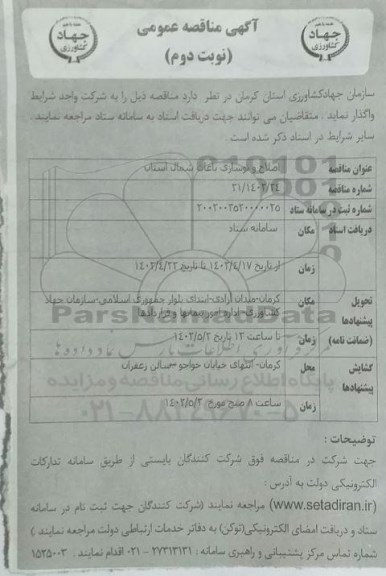 آگهی مناقصه عمومی
(نوبت دوم)
جهاد
کشاورزی
جهاد
کشاورزی
سازمان جهادکشاورزی استان کرمان در نظر دارد مناقصه ذیل را به شرکت واجد شرایط
واگذار نماید . متقاضیان می توانند جهت دریافت اسناد به سامانه ستاد مراجعه نمایند .
سایر شرایط در اسناد ذکر شده است .
عنوان مناقصه اصلاح و نوسازی باغات شمال استان
شماره مناقصه ۲۱/۱۴۰۳/۲۴
شماره ثبت در سامانه ستاد ۲۰۰۲۰۰۲۵۲۰۰۰۰۰۲۵
دریافت اسناد مکان سامانه ستاد
زمان از تاریخ ۱۴۰۳/۴/۱۷ تا تاریخ ۱۴۰۳/۴/۲۳
تحویل پیشنهادها (ضمانت نامه) مکان کرمان-میدان آزادی-ابتدای بلوار جمهوری اسلامی-سازمان جهاد
کشاورزی- اداره امور پیمانها و قراردادها
زمان تا ساعت ۱۳ تاریخ ۱۴۰۳/۵/۲
گشایش پیشنهادها محل کرمان- انتهای خیابان خواجو-سالن زعفران
زمان ساعت ۸ صبح مورخ ۱۴۰۳/۵/۳
ParsNamadData
پایگاه اطلاع رسانی مناقصه و مزایده
۰۲۱-۸۸۳۴۹۶۷۰-۵
توضیحات :
جهت شرکت در مناقصه فوق شرکت کنندگان بایستی از طریق سامانه تدارکات
الکترونیکی دولت به آدرس :
(www.setadiran.ir) مراجعه نمایند (شرکت کنندگان جهت ثبت نام در سامانه
ستاد و دریافت امضای الکترونیکی(توکن) به دفاتر خدمات ارتباطی دولت مراجعه نمایند )
شماره تماس مرکز پشتیبانی و راهبری سامانه : ۲۷۳۱۳۱۳۱ - ۰۲۱ اقدام نمایند . ۱۵۲۵۰۰۳